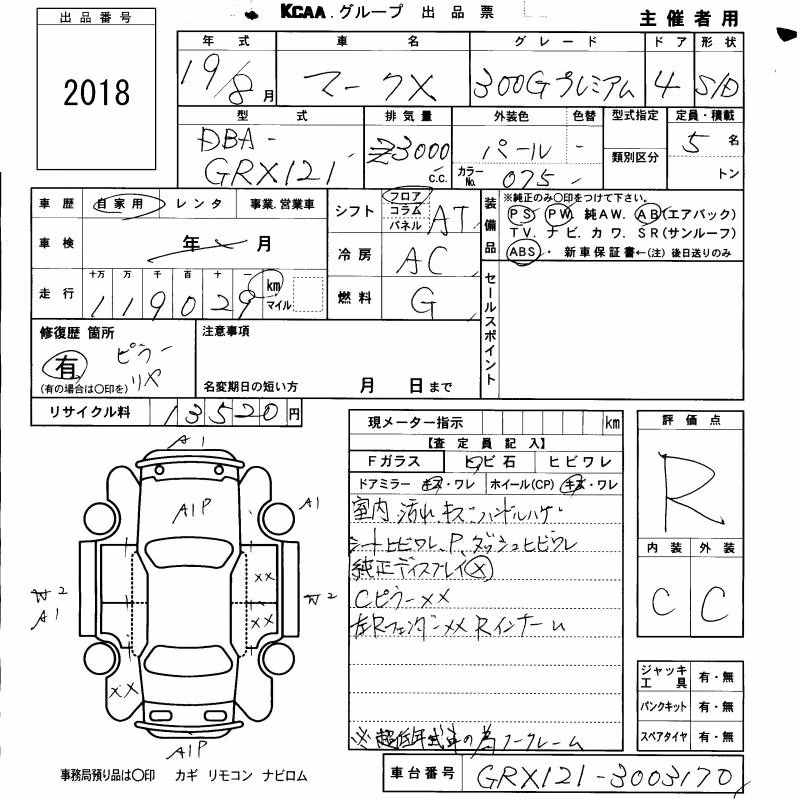 KCAA.グループ 出品票
主催者用
出品番号
2018
年式 車名 グレード ドア 形状
19/8月 マークX 300Gプレミアム 4 S/D
型式 排気量 外装色 色替 型式指定 定員・積載
DBA-
GRX121 3000 c.c. パール - 類別区分 5名
カラーNo. 075 トン
車歴 自家用 レンタ 事業.営業車
シフト フロア コラム パネル AT
装備品 ※純正のみ〇印をつけて下さい。
PS PW 純AW. AB(エアバック)
TV. ナビ. カワ. SR(サンルーフ)
ABS・ 新車保証書←(注) 後日送りのみ
車検 年 月
冷房 AC
走行 十万 万 千 百 十 一
119029 km マイル
燃料 G
セールスポイント
修復歴 箇所
有 ピラー リヤ
(有の場合は〇印を)
注意事項
名変期日の短い方 月 日まで
リサイクル料 13520円
現メーター指示 km
【査定員記入】
Fガラス ヒビ石 ヒビワレ
ドアミラー キズ・ワレ ホイール(CP) キズ・ワレ
室内 汚れ キズ ハンドルハゲ
シートヒビワレ、P、ダッシュヒビワレ
純正ディスプレイ×
Cピラー××
左Rフェンダー×× Rインナーム
※超低年式車の為ノークレーム
評価点
R
内装 外装
C C
A1
A1P
A1
××
W2
××
A1
W2
××
A1P
ジャッキ工具 有・無
パンクキット 有・無
スペアタイヤ 有・無
事務局預り品は〇印 カギ リモコン ナビロム
車台番号 GRX121-3003170